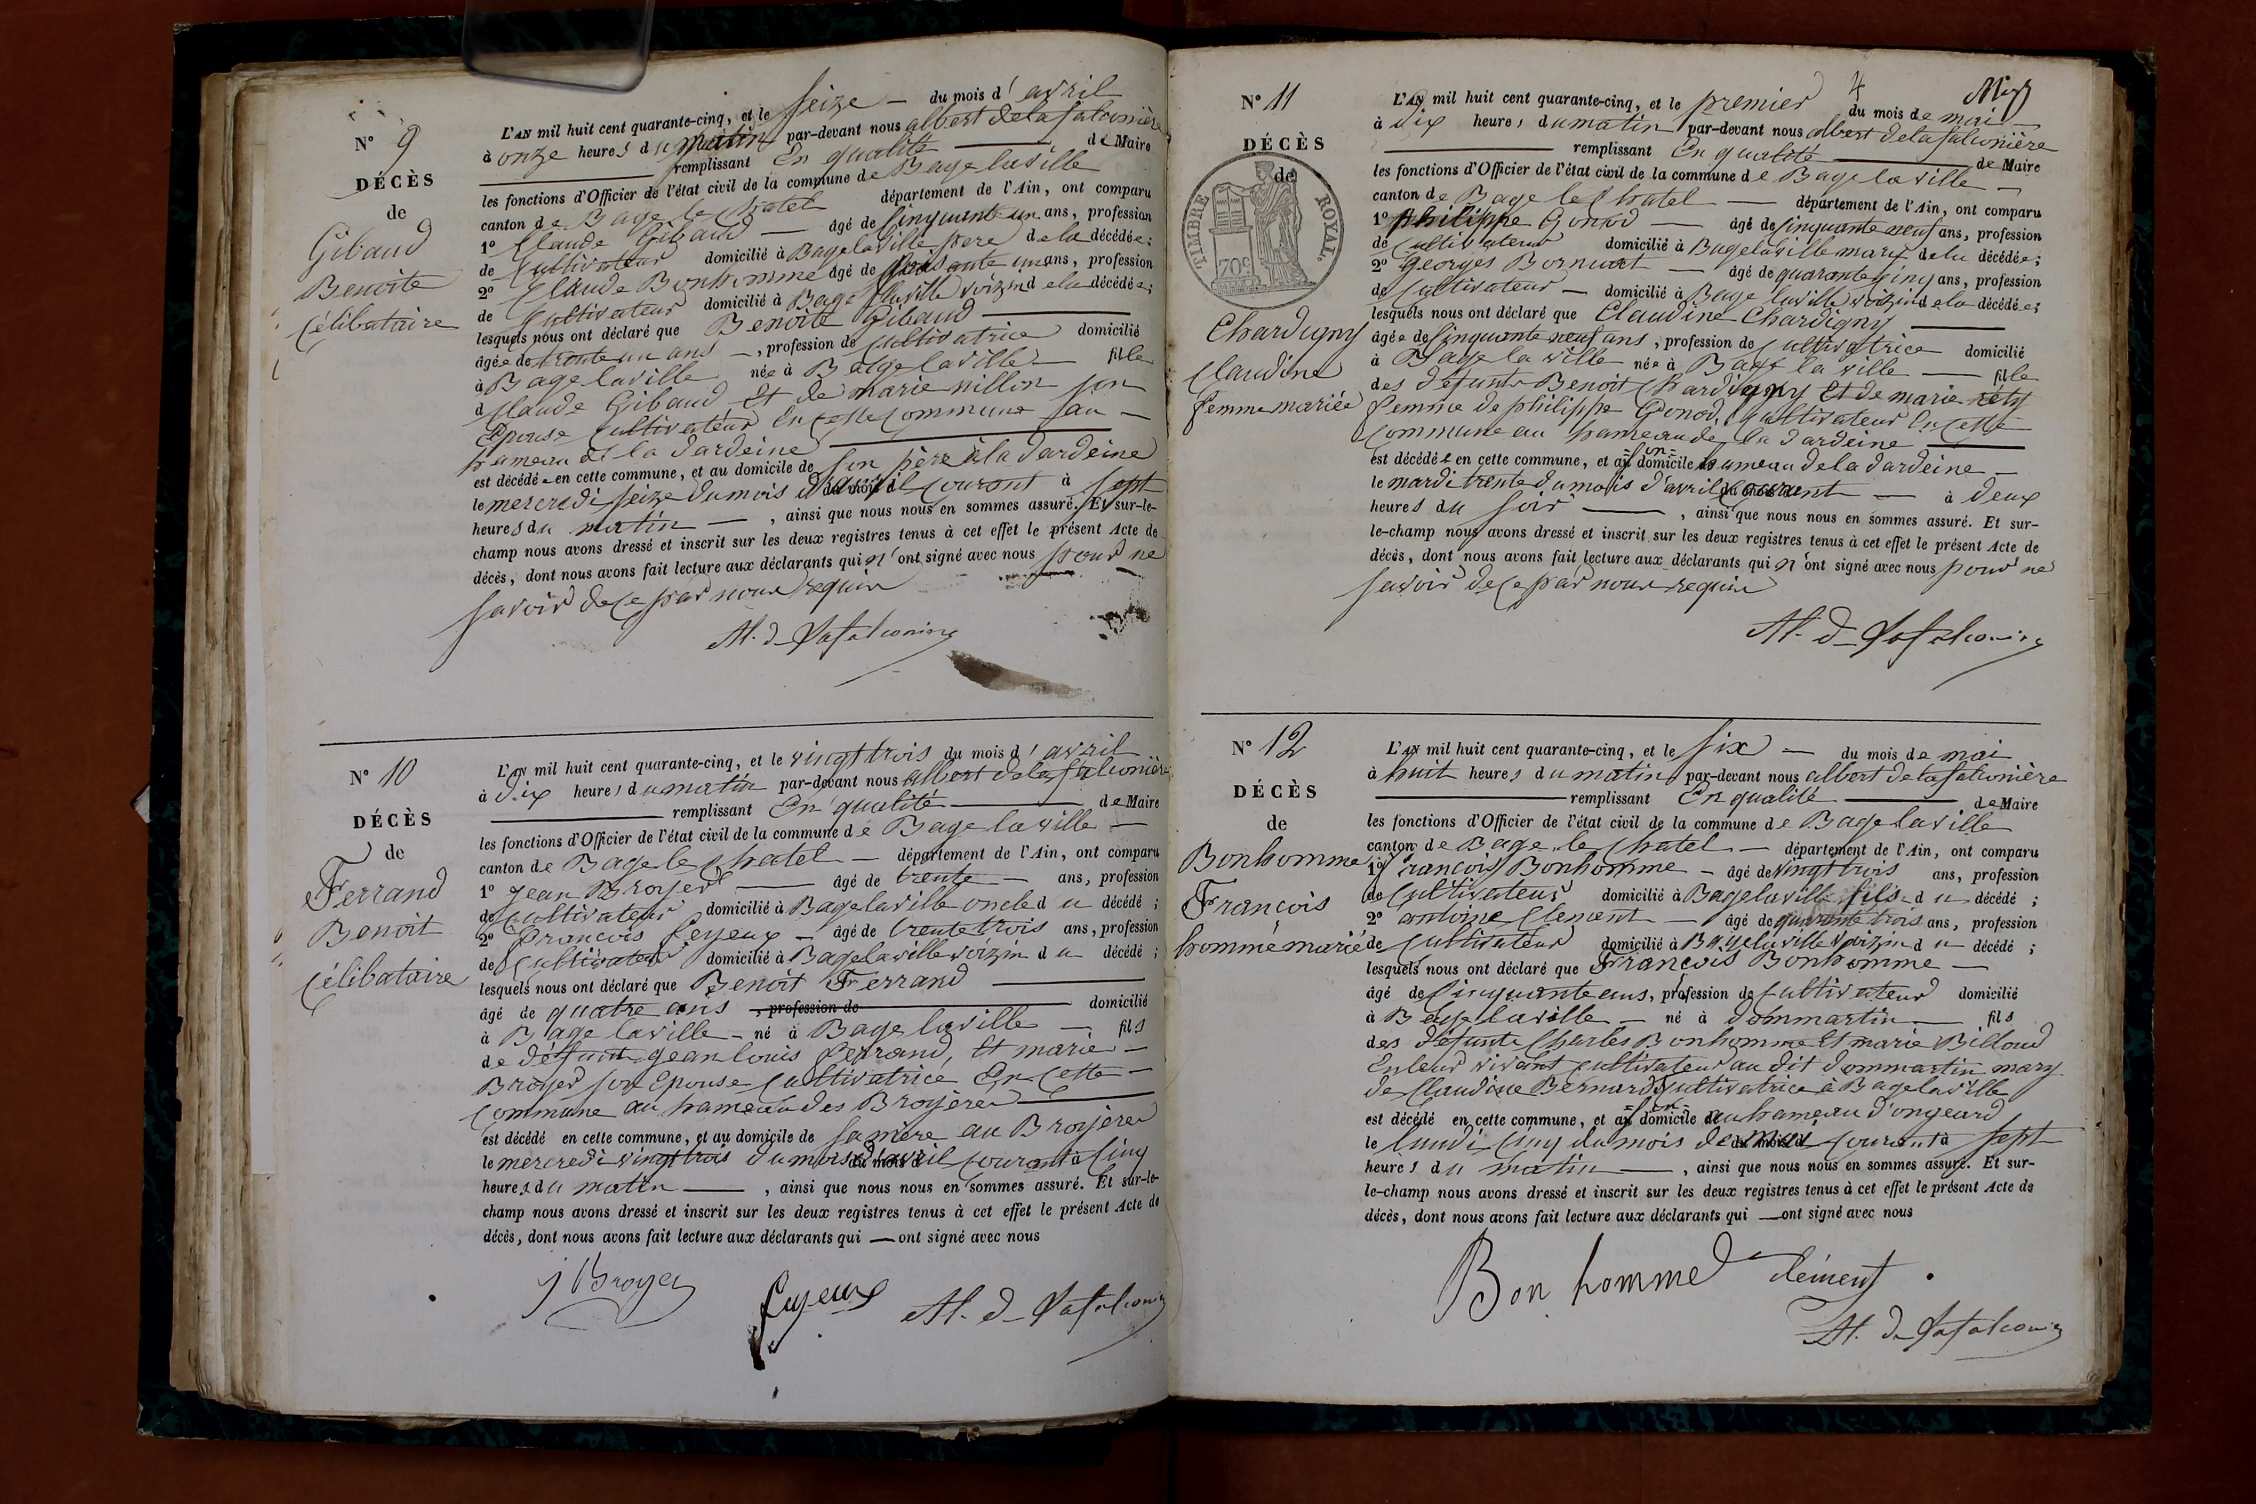 N° 9
DÉCÈS
de
Gibaud
Benoite
Célibataire
L'AN mil huit cent quarante-cinq, et le seize — du mois d'avril
à onze heures du matin par-devant nous albert delafalconière
remplissant En qualité de Maire
les fonctions d'Officier de l'état civil de la commune de Bage laville
canton de Bage le Chatel département de l'Ain, ont comparu
1° Claude Gibaud — âgé de Cinquante un ans, profession
de Cultivateur domicilié à Bagelaville pere de la décédée;
2° Claude Bonhomme âgé de soixante un ans, profession
de Cultivateur domicilié à Bage laville voizin de la décédée;
lesquels nous ont déclaré que Benoite Gibaud
âgée de trente un ans —, profession de Cultivatrice domicilié
à Bage laville née à Bage laville — fille
d Claude Gibaud et de marie nillon son
Epouse Cultivateur en cette commune Sau —
hameau de la dardeine
est décédée en cette commune, et au domicile de son père à la dardeine
le mercredi seize du mois d'avril courant à sept
heures du matin —, ainsi que nous nous en sommes assuré. Et sur-le-
champ nous avons dressé et inscrit sur les deux registres tenus à cet effet le présent Acte de
décès, dont nous avons fait lecture aux déclarants qui n'ont signé avec nous pour ne
savoir de ce par nous requis
Al. de Lafalconière
N° 10
DÉCÈS
de
Ferrand
Benoit
Célibataire
L'AN mil huit cent quarante-cinq, et le vingt trois du mois d'avril
à dix heures du matin par-devant nous albert delafalconière
remplissant En qualité de Maire
les fonctions d'Officier de l'état civil de la commune de Bage laville —
canton de Bage le Chatel — département de l'Ain, ont comparu
1° jean Broyer — âgé de trente — ans, profession
de Cultivateur domicilié à Bagelaville oncle du décédé;
2° François feyeux — âgé de trente trois ans, profession
de Cultivateur domicilié à Bagelaville voizin du décédé;
lesquels nous ont déclaré que Benoit Ferrand
âgé de quatre ans , profession de domicilié
à Bage laville — né à Bage laville — fils
de défunt jean louis ferrand, et marie —
Broyer son Epouse Cultivatrice En Cette —
Commune au hameau des Broyères
est décédé en cette commune, et au domicile de sa mère au Broyères
le mercredi vingt trois du mois d'avril courant à Cinq
heures du matin —, ainsi que nous nous en sommes assuré. Et sur-le-
champ nous avons dressé et inscrit sur les deux registres tenus à cet effet le présent Acte de
décès, dont nous avons fait lecture aux déclarants qui — ont signé avec nous
j Broyer feyeux Al. de Lafalconière
4
N° 11
DÉCÈS
de
TIMBRE ROYAL.
70c
Chardigny
Claudine
femme mariée
L'AN mil huit cent quarante-cinq, et le premier du mois de mai —
à dix heures du matin par-devant nous albert delafalconière
remplissant En qualité de Maire
les fonctions d'Officier de l'état civil de la commune de Bage la ville —
canton de Bage le Chatel — département de l'Ain, ont comparu
1° philippe Gonod — âgé de Cinquante neuf ans, profession
de Cultivateur domicilié à Bagelaville mary de la décédée;
2° Georges Bornuat — âgé de quarante cinq ans, profession
de Cultivateur — domicilié à Bage laville voizin de la décédée;
lesquels nous ont déclaré que Claudine Chardigny
âgée de Cinquante neuf ans, profession de Cultivatrice domicilié
à Bage la ville née à Bage la ville — fille
des défunts Benoit Chardigny et de marie rety
femme de philippe Gonod, Cultivateur en cette
commune au hameau de la dardeine
est décédée en cette commune, et au son domicile hameau de la dardeine —
le mardi trente du mois d'avril courant — à deux
heures du soir —, ainsi que nous nous en sommes assuré. Et sur-
le-champ nous avons dressé et inscrit sur les deux registres tenus à cet effet le présent Acte de
décès, dont nous avons fait lecture aux déclarants qui n'ont signé avec nous pour ne
savoir de ce par nous requis
Al. de Lafalconière
N° 12
DÉCÈS
de
Bonhomme
François
homme marié
L'AN mil huit cent quarante-cinq, et le six — du mois de mai
à huit heures du matin par-devant nous albert delafalconière
remplissant En qualité de Maire
les fonctions d'Officier de l'état civil de la commune de Bage laville
canton de Bage le Chatel — département de l'Ain, ont comparu
1° françois Bonhomme — âgé de vingt trois ans, profession
de Cultivateur domicilié à Bagelaville fils du décédé;
2° antoine Clement — âgé de quarante trois ans, profession
de Cultivateur domicilié à Bagelaville voizin du décédé;
lesquels nous ont déclaré que François Bonhomme —
âgé de Cinquante ans, profession de Cultivateur domicilié
à Bage laville — né à dommartin — fils
des défunts Charles Bonhomme et marie Billoud
en leur vivant cultivateur au dit dommartin mary
de Claudine Bernard Cultivatrice à Bagelaville
est décédé en cette commune, et au son domicile au hameau d'ongeard
le lundi Cinq du mois de mai courant à sept
heures du matin —, ainsi que nous nous en sommes assuré. Et sur-
le-champ nous avons dressé et inscrit sur les deux registres tenus à cet effet le présent Acte de
décès, dont nous avons fait lecture aux déclarants qui — ont signé avec nous
Bonhomme Clément
Al. de Lafalconière